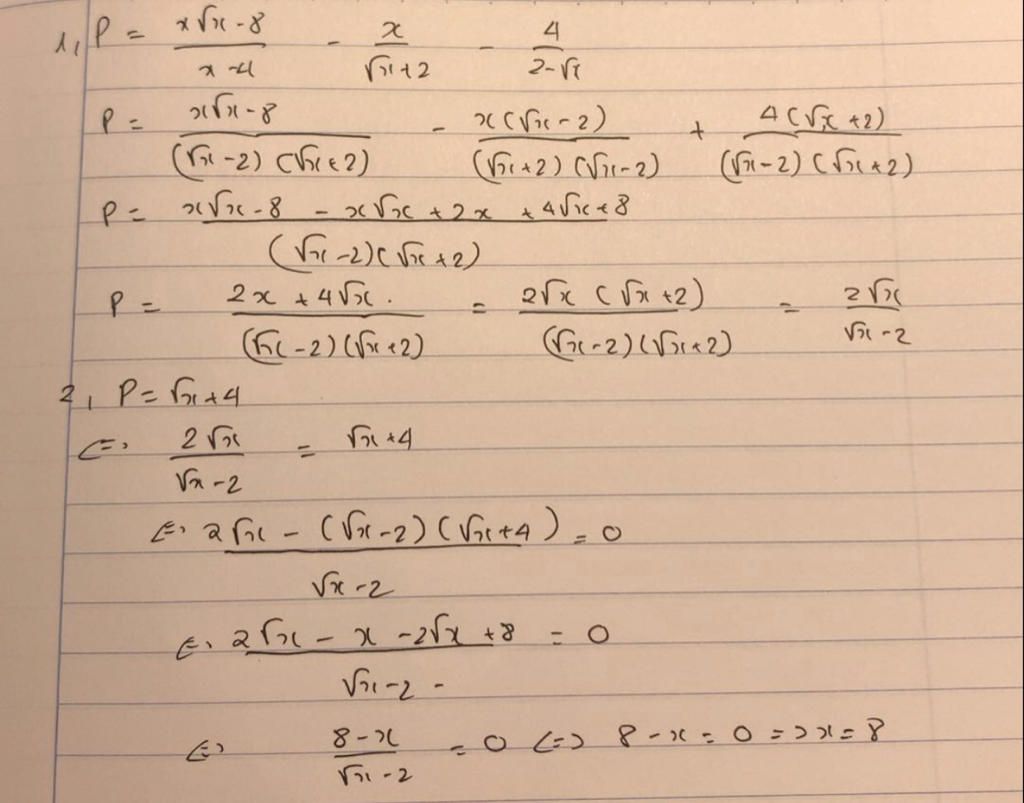 1, P = (x√x - 8)/(x - 4) - x/(√x + 2) - 4/(2 - √x)
P = (x√x - 8)/((√x - 2)(√x + 2)) - x(√x - 2)/((√x + 2)(√x - 2)) + 4(√x + 2)/((√x - 2)(√x + 2))
P = (x√x - 8 - x√x + 2x + 4√x + 8)/((√x - 2)(√x + 2))
P = (2x + 4√x)/((√x - 2)(√x + 2)) = 2√x(√x + 2)/((√x - 2)(√x + 2)) = 2√x/(√x - 2)
2, P = √x + 4
<=> 2√x/(√x - 2) = √x + 4
<=> (2√x - (√x - 2)(√x + 4))/(√x - 2) = 0
<=> (2√x - x - 2√x + 8)/(√x - 2) = 0
<=> (8 - x)/(√x - 2) = 0 <=> 8 - x = 0 => x = 8